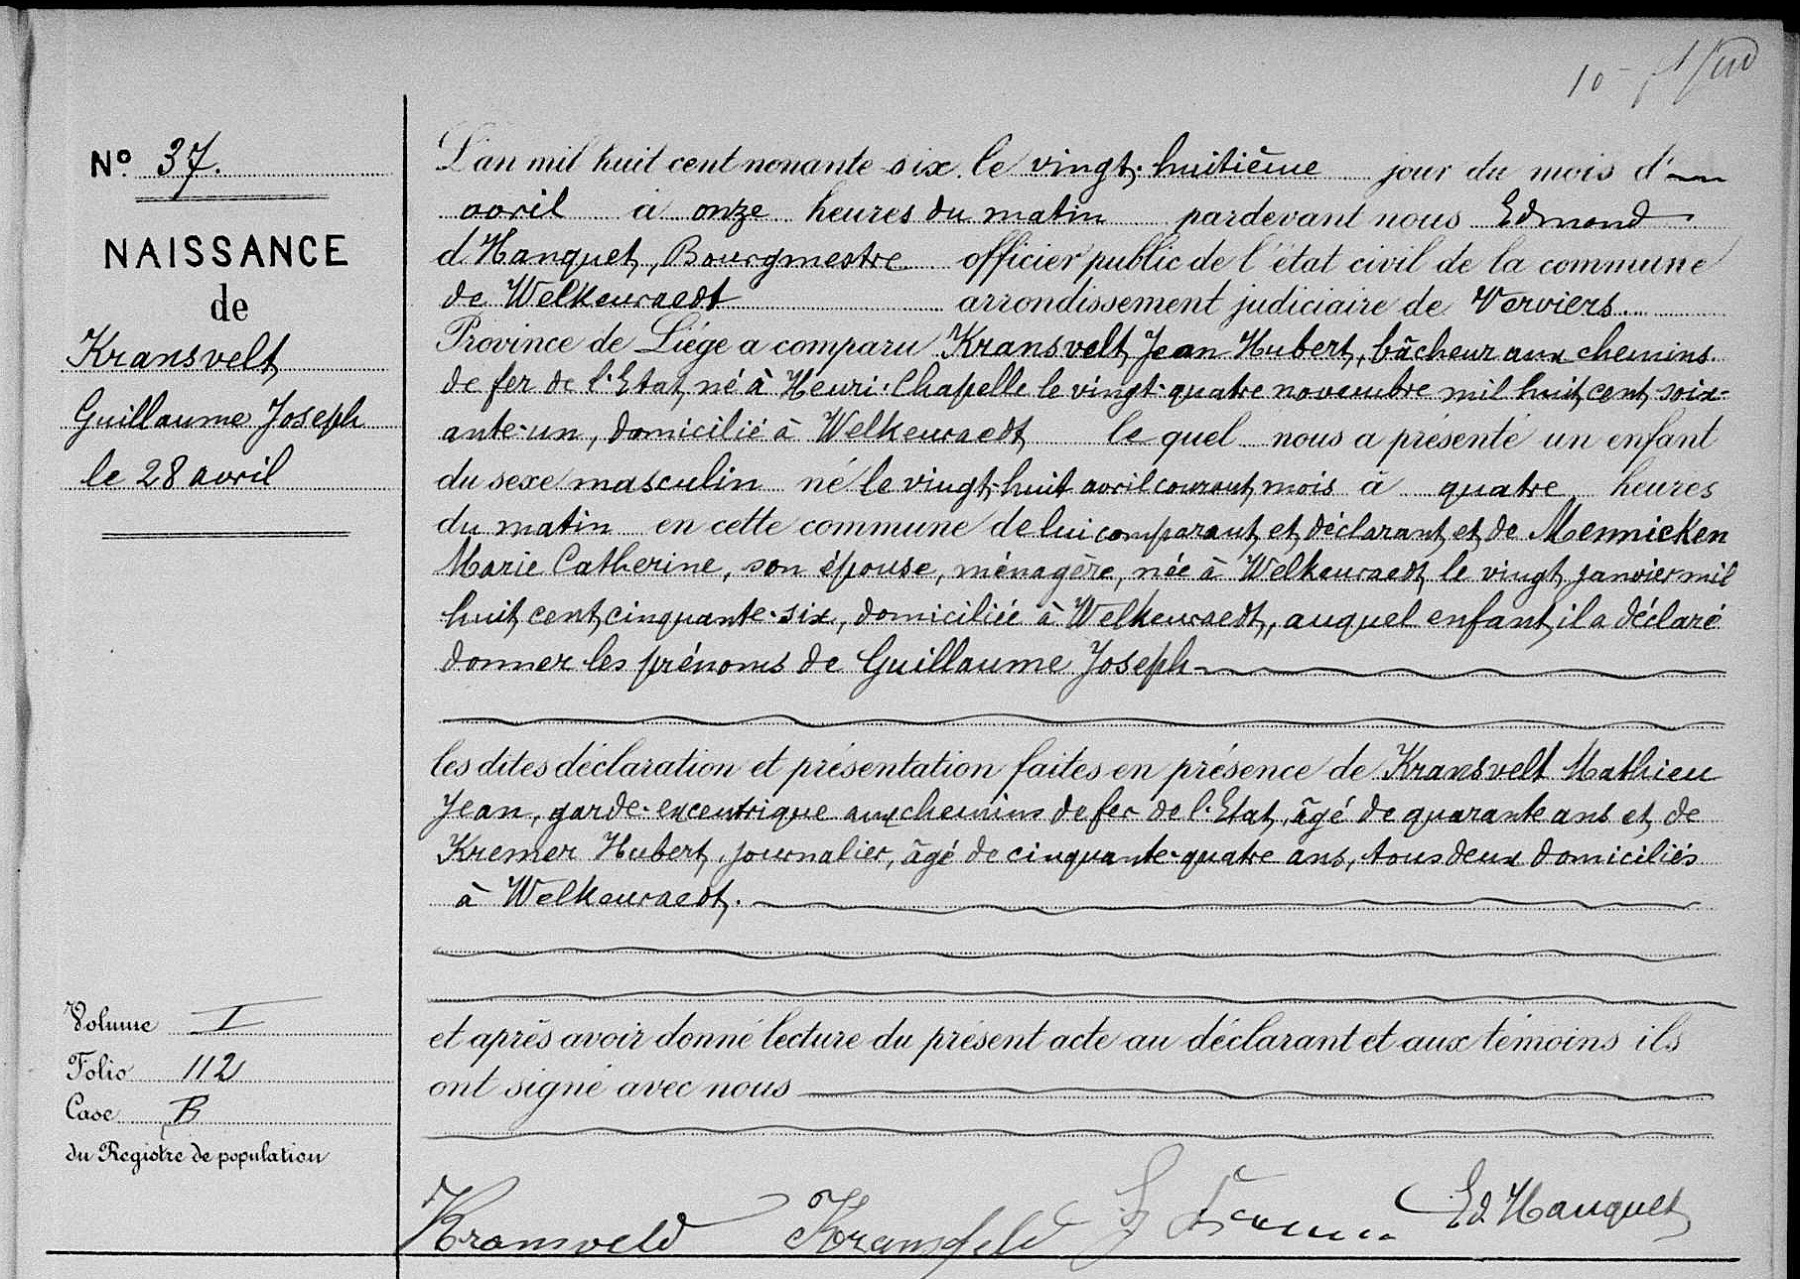 10
N° 37.
NAISSANCE
de
Kransvelt
Guillaume Joseph
le 28 avril
L'an mil huit cent nonante six le vingt-huitième jour du mois d'
avril à onze heures du matin pardevant nous Edmond
d'Hanquet, Bourgmestre officier public de l'état civil de la commune
de Welkenraedt arrondissement judiciaire de Verviers.
Province de Liége a comparu Kransvelt Jean Hubert, bâcheur aux chemins
de fer de l'Etat, né à Henri-Chapelle le vingt-quatre novembre mil huit cent soix-
ante-un, domicilié à Welkenraedt lequel nous a présenté un enfant
du sexe masculin né le vingt-huit avril courant mois à quatre heures
du matin en cette commune de lui comparant et déclarant et de Mennicken
Marie Catherine, son épouse, ménagère, née à Welkenraedt le vingt janvier mil
huit cent cinquante-six, domiciliée à Welkenraedt, auquel enfant il a déclaré
donner les prénoms de Guillaume Joseph
les dites déclaration et présentation faites en présence de Kransvelt Mathieu
Jean, garde-excentrique aux chemins de fer de l'Etat, âgé de quarante ans et de
Kremer Hubert, journalier, âgé de cinquante-quatre ans, tous deux domiciliés
à Welkenraedt.
et après avoir donné lecture du présent acte au déclarant et aux témoins ils
ont signé avec nous
Volume I
Folio 112
Case B
du Registre de population
Kransveld Kransfeld Ed Hanquet